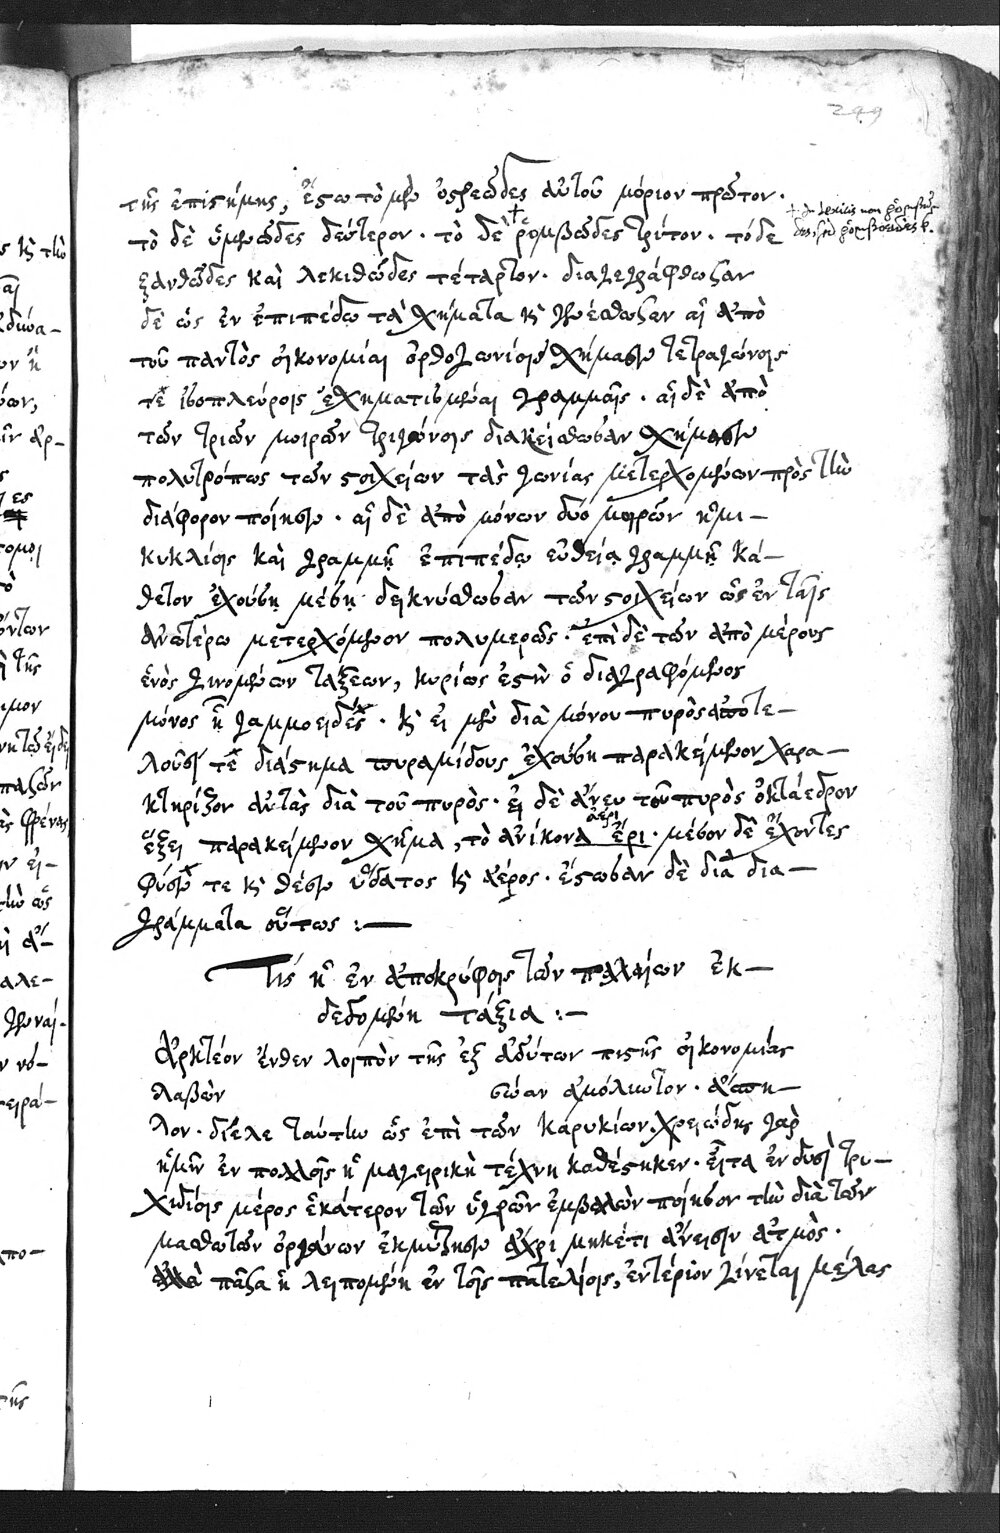 299
τῆς ἐπιστήμης, ἔστω τὸ μὲν ὀστρεῶδες αὐτοῦ μόριον πρῶτον.
τὸ δὲ ὑμενῶδες δεύτερον. τὸ δὲ + ῥομβῶδες τρίτον. τὸ δὲ
ξανθῶδες καὶ λεκιθῶδες τέταρτον. διαγεγράφθωσαν
δὲ ὡς ἐν ἐπιπέδῳ τὰ σχήματα καὶ γενέσθωσαν αἱ ἀπὸ
τοῦ παντὸς οἰκονομίαι ὀρθογωνίοις σχήμασιν τετραγώνοις
τὲ ἰσοπλεύροις ἐσχηματισμέναι γραμμαῖς. αἱ δὲ ἀπὸ
τῶν τριῶν μοιρῶν τριγώνοις διακείσθωσαν σχήμασιν
πολυτρόπως τῶν στοιχείων τὰς γωνίας μετερχομένων πρὸς τὴν
διάφορον ποίησιν. αἱ δὲ ἀπὸ μόνων δύο μοιρῶν ἡμι-
κυκλίοις καὶ γραμμῇ ἐπιπέδῳ εὐθείᾳ γραμμῇ κά-
θετον ἐχούσῃ μέσῃ δεικνύσθωσαν τῶν στοιχείων ὡς ἐν ταῖς
ἀνωτέρω μετερχόμενον πολυμερῶς. ἐπὶ δὲ τῶν ἀπὸ μέρους
ἑνὸς γινομένων τάξεων, κυρίως ἐστὶν ὁ διαγραφόμενος
μόνος ἢ γαμμοειδές. καὶ εἰ μὲν διὰ μόνου πυρὸς ἀποτε-
λοῦσί τε διάστημα πυραμίδους ἐχούση παρακείμενον χαρα-
κτηρίζον αὐτὰς διὰ τοῦ πυρὸς. εἰ δὲ ἄνευ τοῦ πυρὸς ὀκτάεδρον
ἀέρι
ἕξει παρακείμενον σχῆμα, τὸ ἀνίκονα ἔρι. μέσον δὲ ἔχοντες
φύσιν τε καὶ θέσιν ὕδατος καὶ ἀέρος. ἔστωσαν δὲ διὰ δια-
γράμματα οὕτως :—
Τίς ἡ ἐν ἀποκρύφοις τῶν παλαιῶν ἐκ-
δεδομένη τάξια :—
Ἀρκτέον ἔνθεν λοιπὸν τῆς ἐξ ἀδύτων πιστῆς οἰκονομίας
λαβὼν σῶαν ἀμόλυντον. ἄσπι-
λον. δίελε ταύτην ὡς ἐπὶ τῶν καρυκίων. χρειώδης γὰρ
ἡμῖν ἐν πολλοῖς ἡ μαγειρικὴ τέχνη καθέστηκεν. εἶτα ἐν δυσὶ τρυ-
χιδίοις μέρος ἑκάτερον τῶν ὑγρῶν ἐμβαλὼν ποίησον τὴν διὰ τῶν
μασθωτῶν ὀργάνων ἐκμύζησιν ἄχρι μηκέτι ἄνεισιν ἀτμὸς.
ἀλλὰ πᾶσα ἡ λειπομένη ἐν τοῖς πατελίοις, ἐντέριον γίνεται μέλας